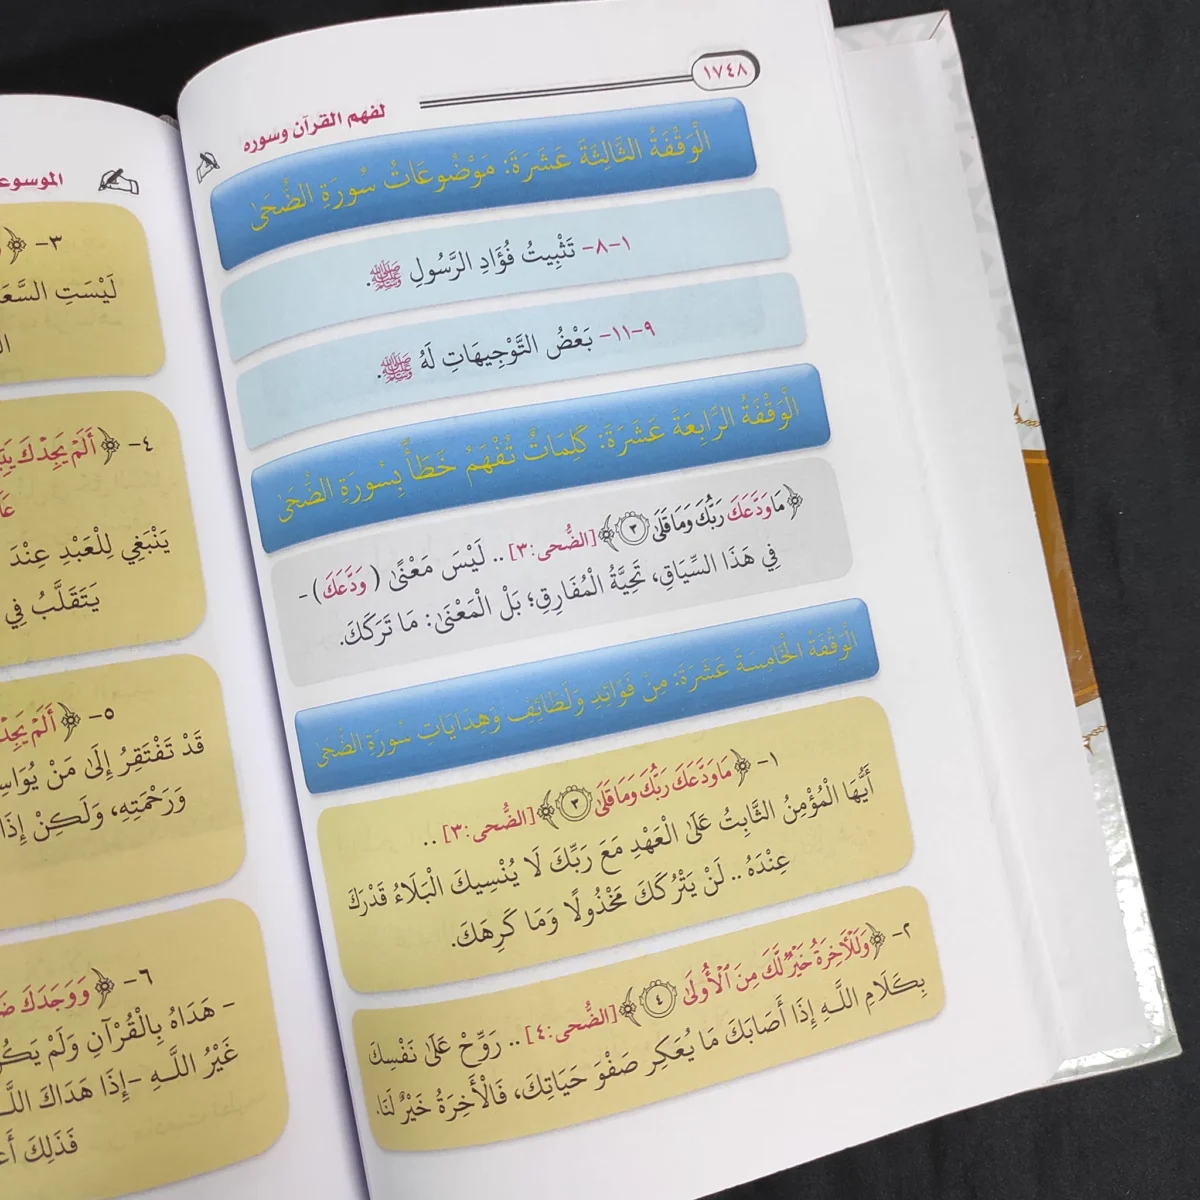 ١٧٤٨
لفهم القرآن وسوره
الْوَقْفَةُ الثَّالِثَةَ عَشَرَةَ: مَوْضُوعَاتُ سُورَةِ الضُّحَىٰ
١-٨- تَثْبِيتُ فُؤَادِ الرَّسُولِ ﷺ.
٩-١١- بَعْضُ التَّوْجِيهَاتِ لَهُ ﷺ.
الْوَقْفَةُ الرَّابِعَةَ عَشَرَةَ: كَلِمَاتٌ تُفْهَمُ خَطَأً بِسُورَةِ الضُّحَىٰ
﴿مَا وَدَّعَكَ رَبُّكَ وَمَا قَلَىٰ ٣﴾ [الضُّحى:٣] .. لَيْسَ مَعْنًىٰ (وَدَّعَكَ) -
فِي هَذَا السِّيَاقِ، تَحِيَّةُ الْمُفَارِقِ؛ بَلْ الْمَعْنَىٰ: مَا تَرَكَكَ.
الْوَقْفَةُ الْخَامِسَةَ عَشَرَةَ: مِنْ فَوَائِدِ وَلَطَائِفِ وَهِدَايَاتِ سُورَةِ الضُّحَىٰ
١- ﴿مَا وَدَّعَكَ رَبُّكَ وَمَا قَلَىٰ ٣﴾ [الضُّحى:٣] ..
أَيُّهَا الْمُؤْمِنُ الثَّابِتُ عَلَىٰ الْعَهْدِ مَعَ رَبِّكَ لَا يُنْسِيكَ الْبَلَاءُ قَدْرَكَ
عِنْدَهُ .. لَنْ يَتْرُكَكَ مَخْذُولًا وَمَا كَرِهَكَ.
٢- ﴿وَلَلْأَخِرَةُ خَيْرٌ لَّكَ مِنَ ٱلْأُولَىٰ ٤﴾ [الضُّحى:٤] .. رَوِّحْ عَلَىٰ نَفْسِكَ
بِكَلَامِ اللَّهِ إِذَا أَصَابَكَ مَا يُعَكِر صَفْوَ حَيَاتِكَ، فَالْأَخِرَةُ خَيْرٌ لَنَا.
٣- ﴿
لَيْسَتِ
٤- ﴿أَلَمْ يَجِدْكَ
يَنْبَغِي لِلْعَبْدِ عِنْدَ
يَتَقَلَّبُ فِي
٥- ﴿أَلَمْ
قَدْ تَفْتَقِرُ إِلَىٰ مَنْ
وَرَحْمَتِهِ، وَلَكِنْ إِذَا
٦- ﴿وَوَجَدَكَ
- هَدَاهُ بِالْقُرْآنِ وَلَمْ
غَيْرُ اللَّهِ -إِذَا هَدَاكَ
فَذَلِكَ